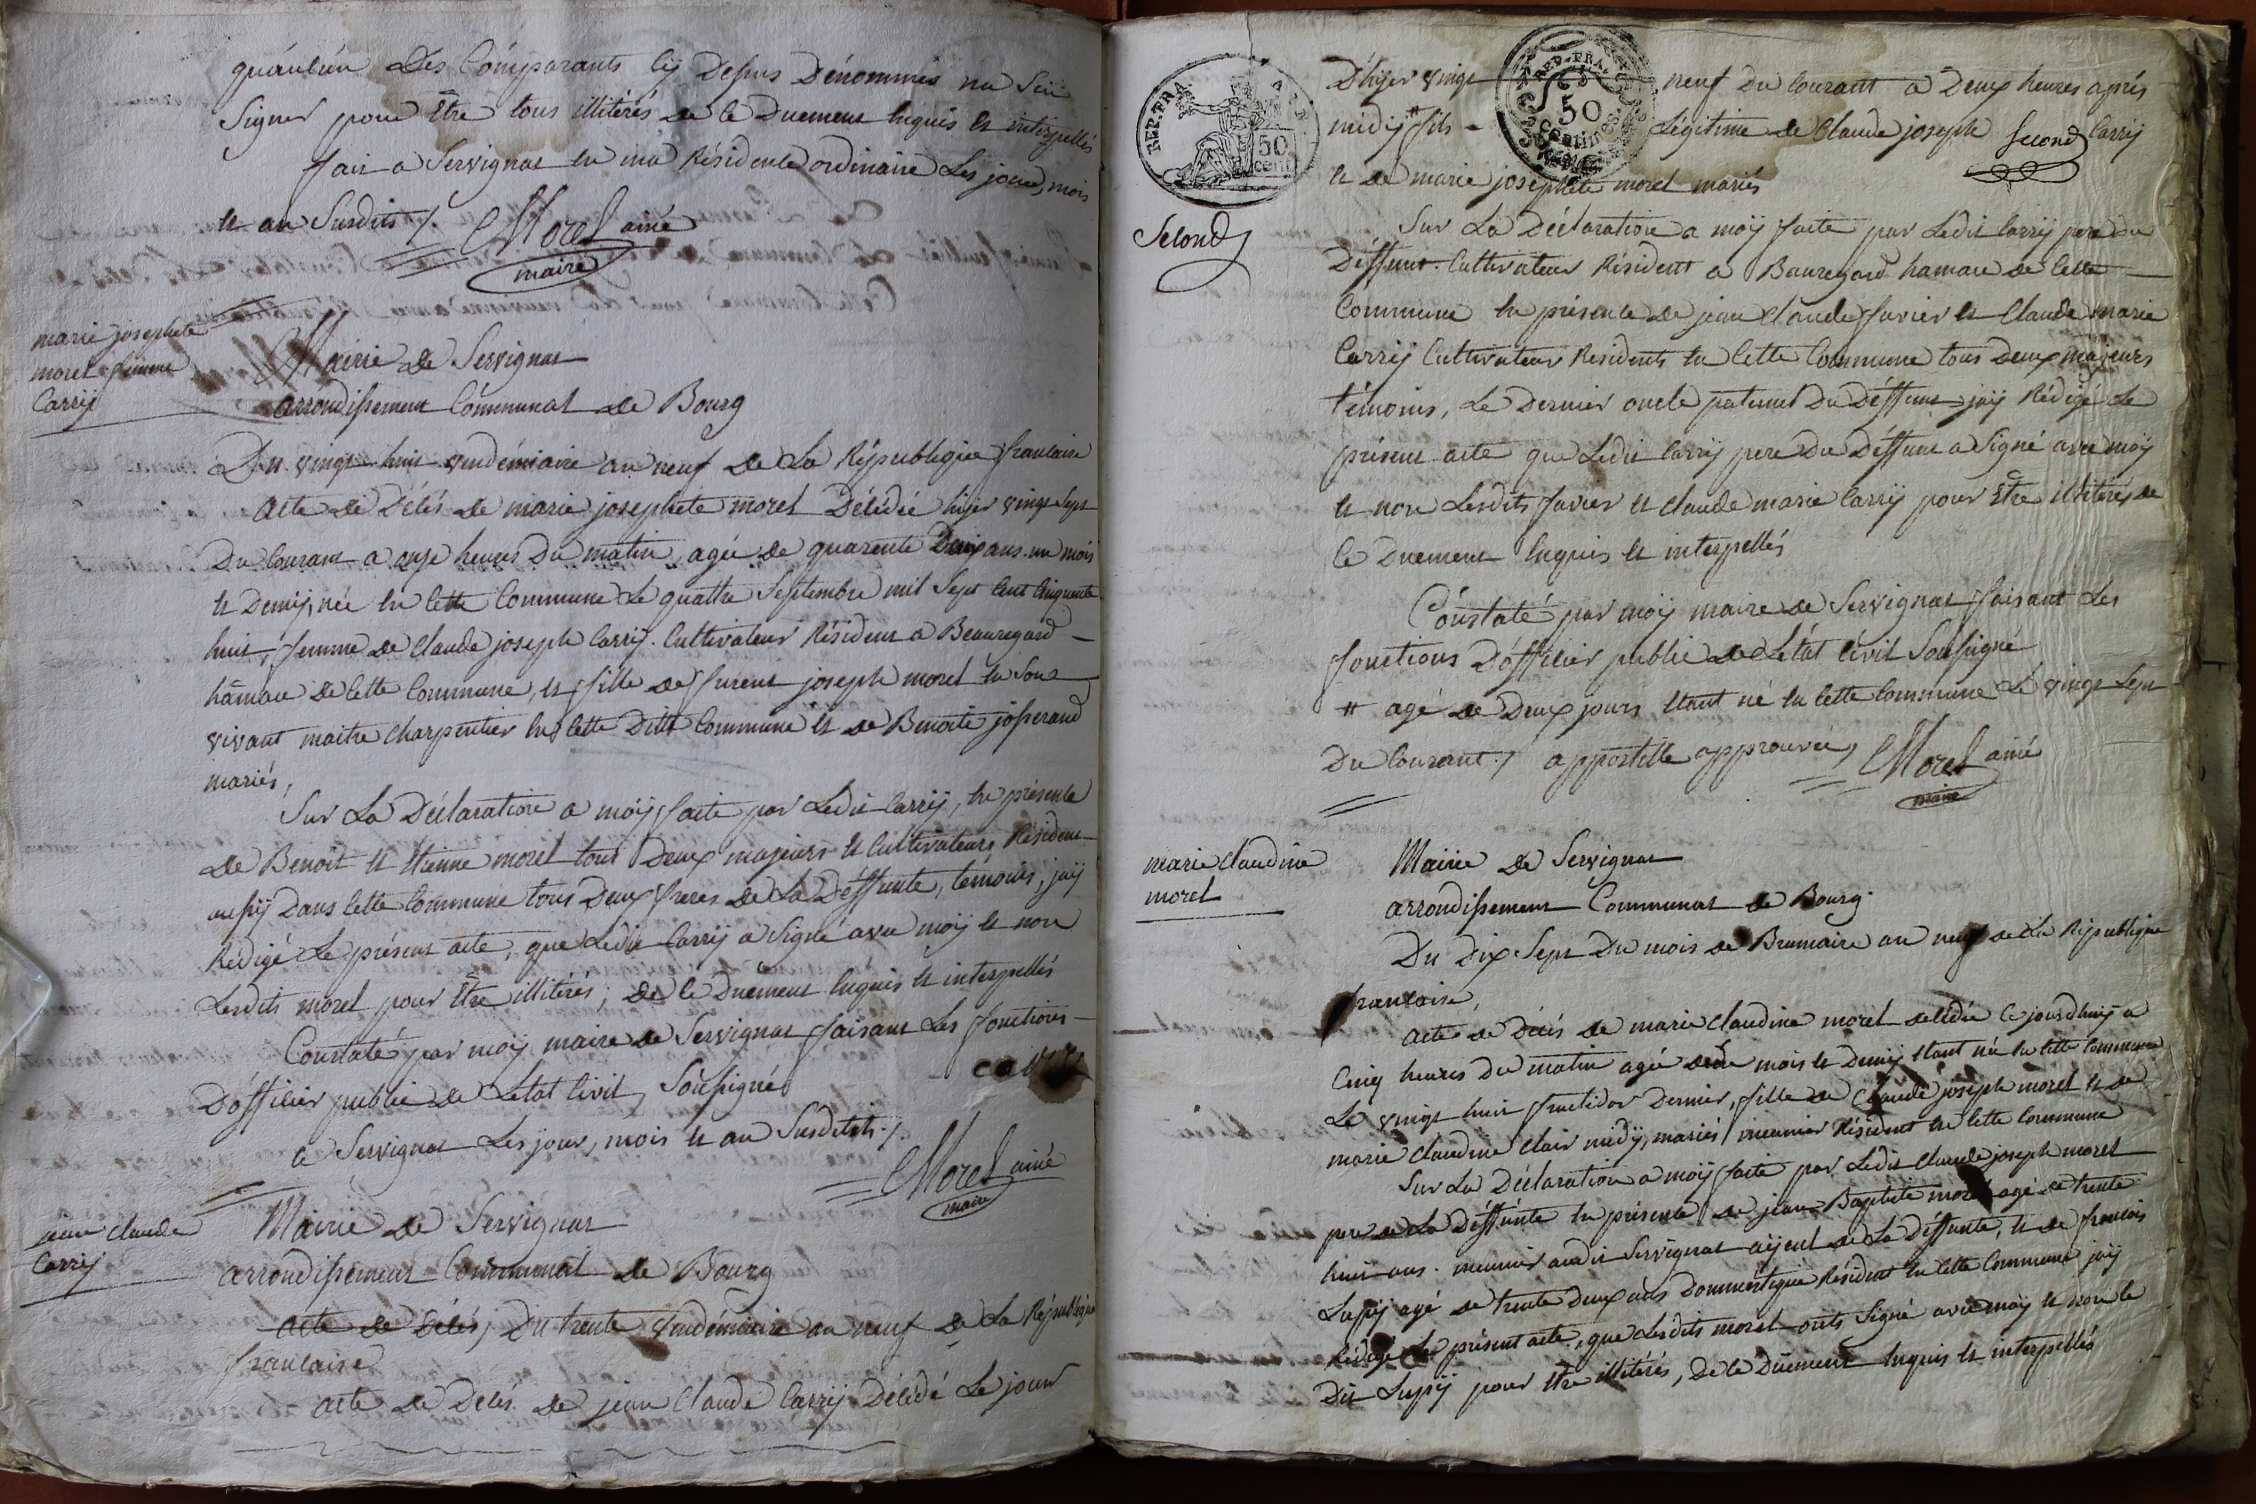 qu'aucun des Comparants cy dessus dénommés na scu
signer pour Être tous illitérés de ce Duement Enquis et interpellés
fait a Servignat en ma Résidence ordinaire Les jour, mois
et an Susdits ./. Morel ainé
maire
marie josephete
morel femme
Carrij
Mairie de Servignat
arrondissement Communal de Bourg
Du vingt huit vendémiaire an neuf de La République francaise
acte de Décés de marie josephete morel Décédée hijer vingt Sept
Du Courant a onze heures Du matin, agée de quarente Deux ans un mois
et Demij, née En Cette Commune Le quatre Septembre mil Sept Cent Cinquente
huit, femme de Claude joseph Carrij. Cultivateur Résident a Beauregard
hamau de Cette Commune, et fille de furent joseph morel En Son
vivant maitre Charpentier En Cette Ditte Commune et de Benoite josserand
mariés,
Sur La Déclaration a moij faite par Ledit Carrij, En présence
de Benoit et Etienne morel tous Deux majeurs et Cultivateurs Résident
aussij Dans Cette Commune tous Deux freres de La Déffunte, témoins, jaij
Rédigé Le présent acte, que Ledit Carrij a Signé avec moij et non
Lesdits morel pour Être illitérés, de ce Duement Enquis et interpellés
Constaté par moij maire de Servignat faisant Les fonctions
D'officier public de L'etat Civil, Soussigné
a Servignat Les jour, mois et an Susdits ./.
Morel ainé
maire
jean Claude
Carrij
Mairie de Servignat
arrondissement Communal de Bourg
acte de Décés, Du trente vendémiaire an neuf de La République
francaise
acte de Décés de jean Claude Carrij Décédé Le jour
REP. FRA.
50
cent
REP. FRA.
50
centimes
D'hijer vingt neuf Du Courant a Deux heures aprés
midij # fils Légitime de Claude joseph Second Carrij
et de marie josephete morel mariés
Second
Sur La Déclaration a moij faite par Ledit Carrij pere Du
Déffunt. Cultivateur Résident a Bauregard hamau de Cette
Commune En présence de jean Claude favier et Claude marie
Carrij Cultivateur Residents En Cette Commune tous Deux majeurs
témoins, Le Dernier oncle paternel Du Déffunt jaij Rédigé Le
présent acte que Ledit Carrij pere Du Déffunt a Signé avec moij
et non Lesdits favier et Claude marie Carrij pour Être illitérés de
ce Duement Enquis et interpellés
Constaté par moij maire de Servignat faisant Les
fonctions D'officier public de L'état Civil Soussigné
# agé de Deux jours Etant né En Cette Commune Le vingt Sept
Du Courant ./. appostille approuvée, Morel ainé
maire
marie Claudine
morel
Mairie de Servignat
arrondissement Communal de Bourg
Du Dix Sept Du mois de Brumaire an neuf de La République
francaise,
acte de Décés de marie Claudine morel décédée Ce jourdhuij a
Cinq heures du matin agée de mois et Demij Etant née En Cette Commune
Le vingt huit fructidor Dernier, fille de Claude joseph morel et de
marie Claudine Clair midij, mariés meunier Résident En Cette Commune
Sur La Déclaration a moij faite par Ledit Claude joseph morel
pere de La Déffunte En présence de jean Baptiste morel agé de trente
huit ans. meunier audit Servignat aijeul de La Déffunte, et de francois
Lupij agé de trente Deux ans Dommestique Résident En Cette Commune jaij
Rédigé Le présent acte, que Lesdits morel onts Signé avec moij et non Le
Dit Lupij pour Etre illitérés, De ce Dûement Enquis et interpellés